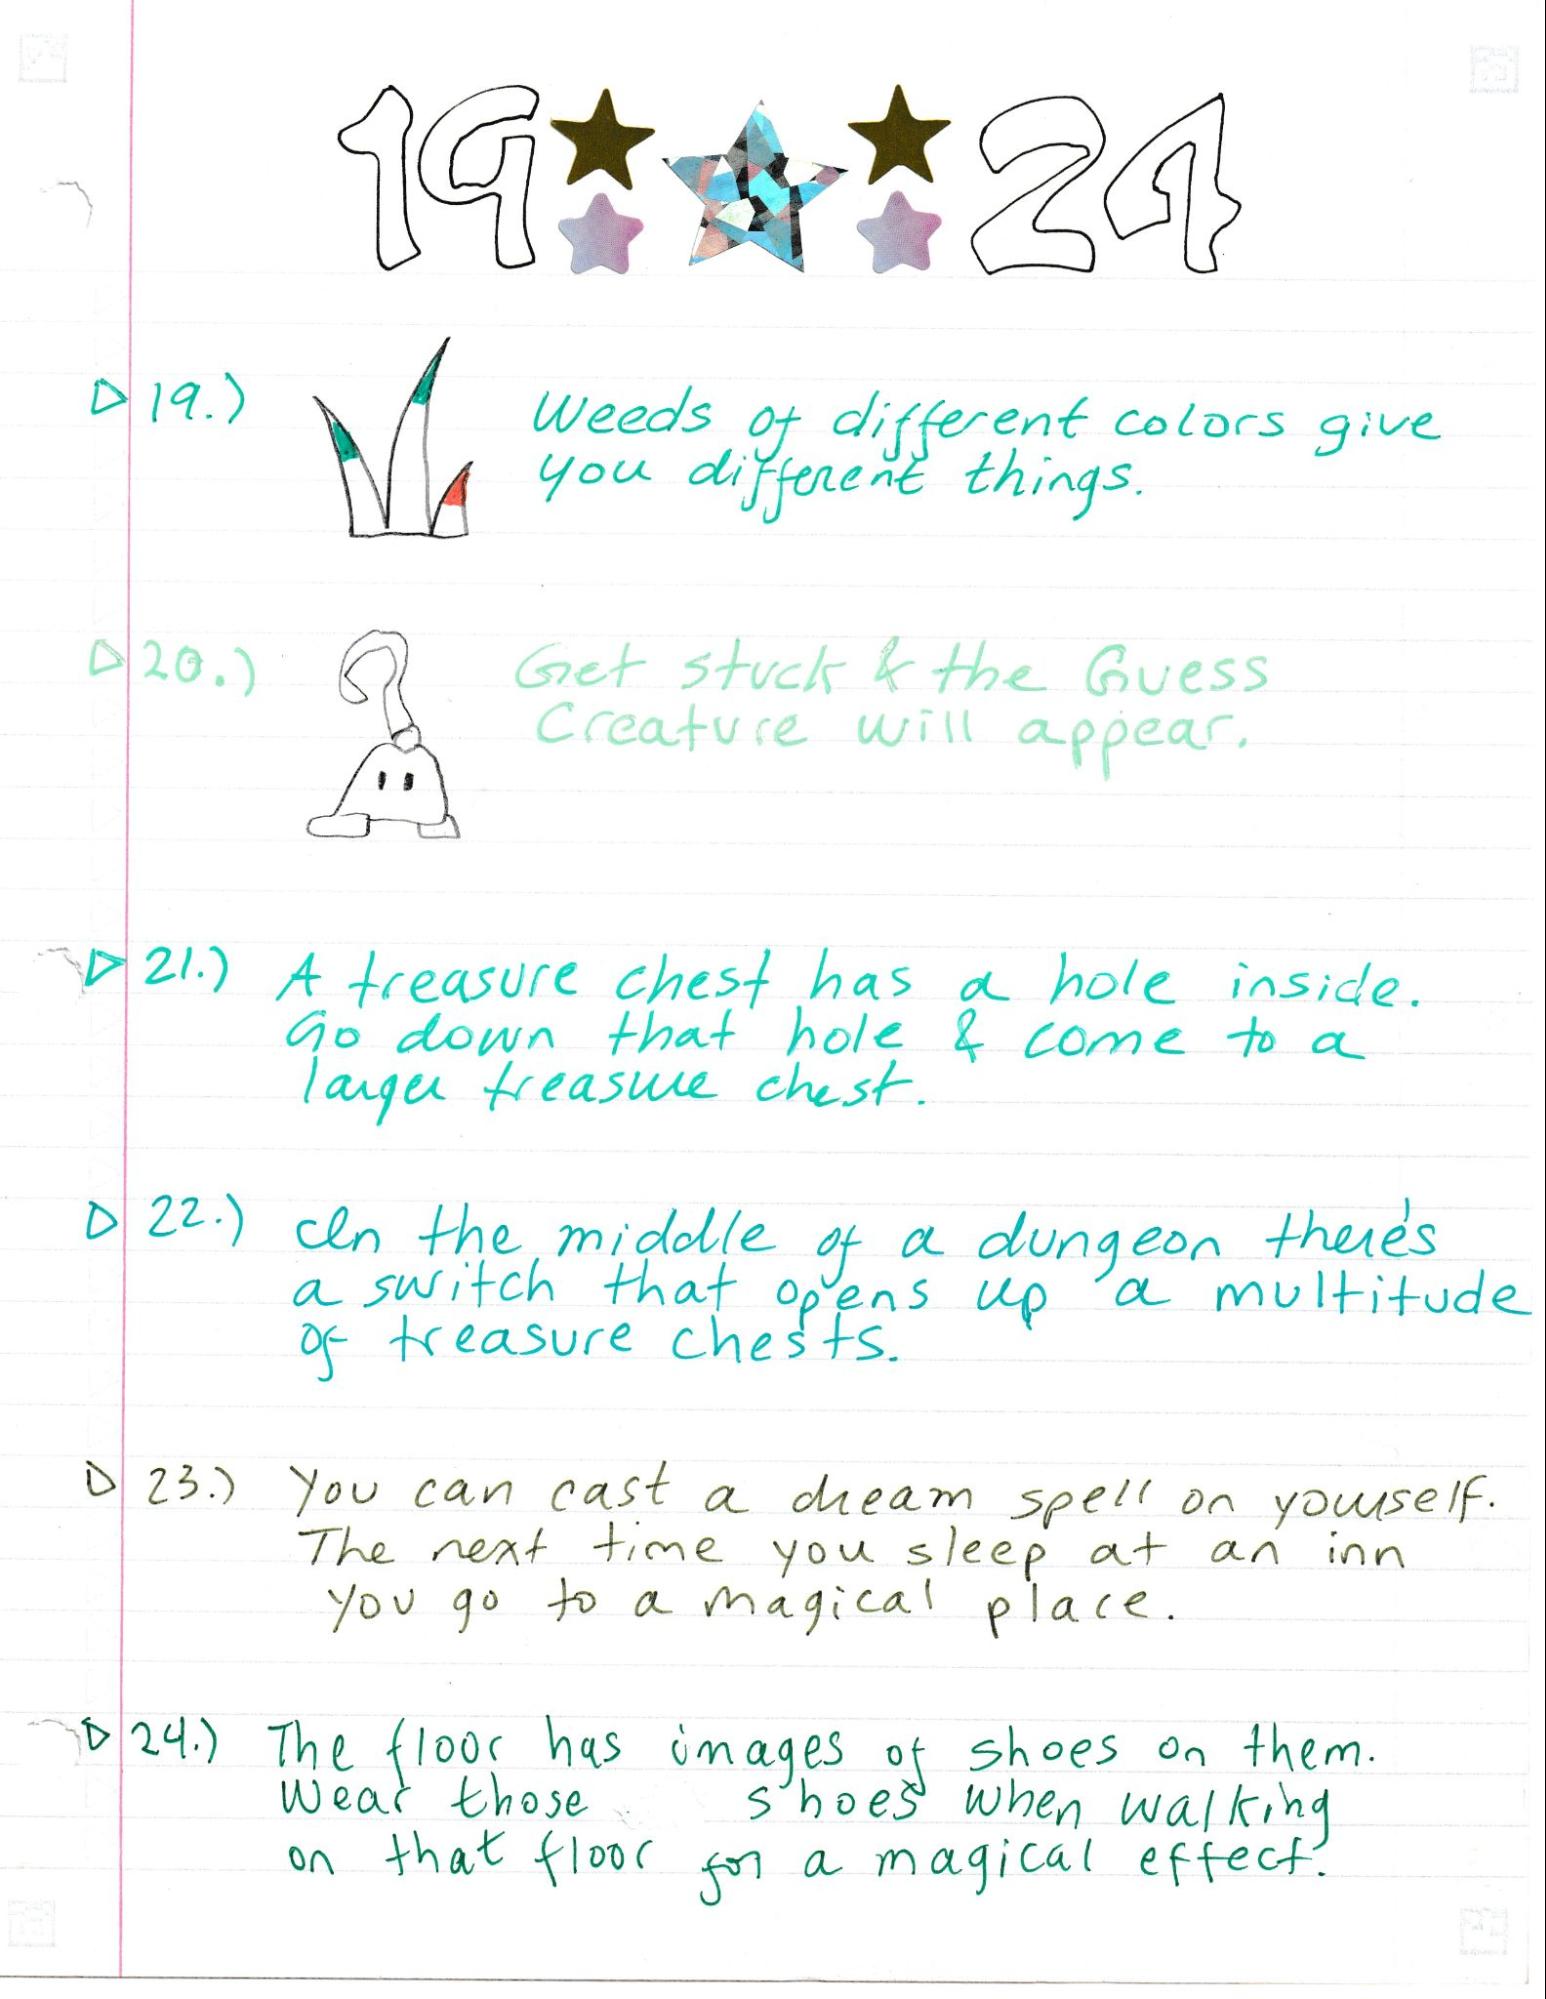 19 24
19.) Weeds of different colors give
you different things.
20.) Get stuck & the Guess
Creature will appear.
21.) A treasure chest has a hole inside.
Go down that hole & come to a
larger treasure chest.
22.) In the middle of a dungeon there's
a switch that opens up a multitude
of treasure chests.
23.) You can cast a dream spell on yourself.
The next time you sleep at an inn
you go to a magical place.
24.) The floor has images of shoes on them.
Wear those shoes when walking
on that floor for a magical effect.